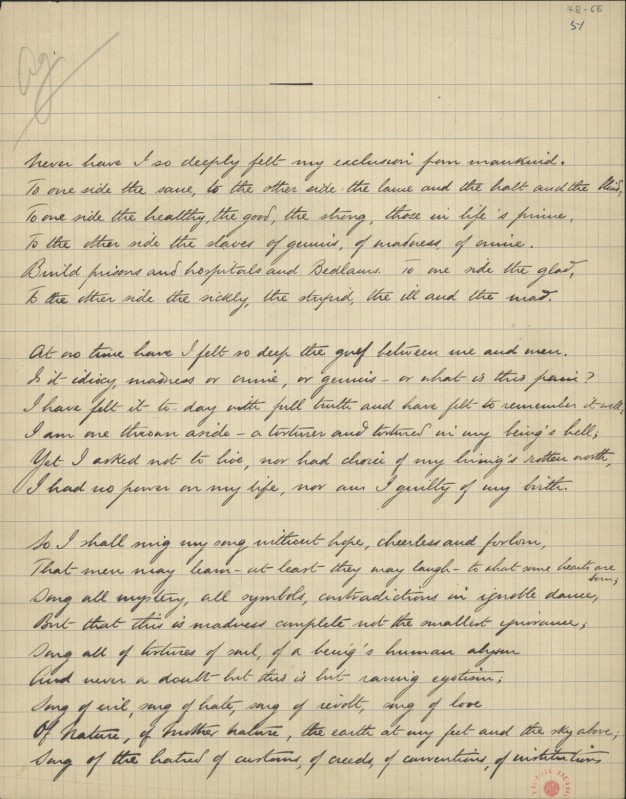 78-66
51
Ag.
Never have I so deeply felt my exclusion from mankind.
To one side the sane, to the other side the lame and the halt and the blind,
To one side the healthy, the good, the strong, those in life's prime,
To the other side the slaves of genius, of madness, of crime.
Build prisons and hospitals and Bedlams. To one side the glad,
To the other side the sickly, the stupid, the ill and the mad.
At no time have I felt so deep the gulf between me and men.
Is it idiocy, madness or crime, or genius — or what is this pain?
I have felt it to-day with full truth and have felt to remember it well;
I am one thrown aside — a torturer and tortured in my being's hell;
Yet I asked not to live, nor had choice of my living's rotten worth,
I had no power on my life, nor am I guilty of my birth.
So I shall sing my song without hope, cheerless and forlorn,
That men may learn — at least they may laugh — to what some hearts are
born;
Song all mystery, all symbols, contradictions in ignoble dance,
But that this is madness complete not the smallest ignorance;
Song all of tortures of soul, of a being's human abysm
And never a doubt but this is but raving egotism;
Song of evil, song of hate, song of revolt, song of love
Of Nature, of Mother Nature, the earth at my feet and the sky above;
Song of the hatred of customs, of creeds, of conventions, of institutions